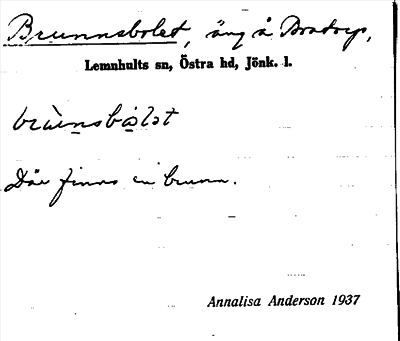 Brunnsbolet, äng å Bratorp,
Lemnhults sn, Östra hd, Jönk. l.
brùnsbólət
Där finns en brunn.
Annalisa Anderson 1937